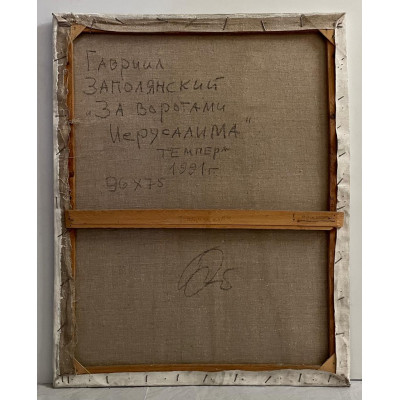 Гавриил
Заполянский
„За воротами
Иерусалима"
темпера
1991г.
96x75